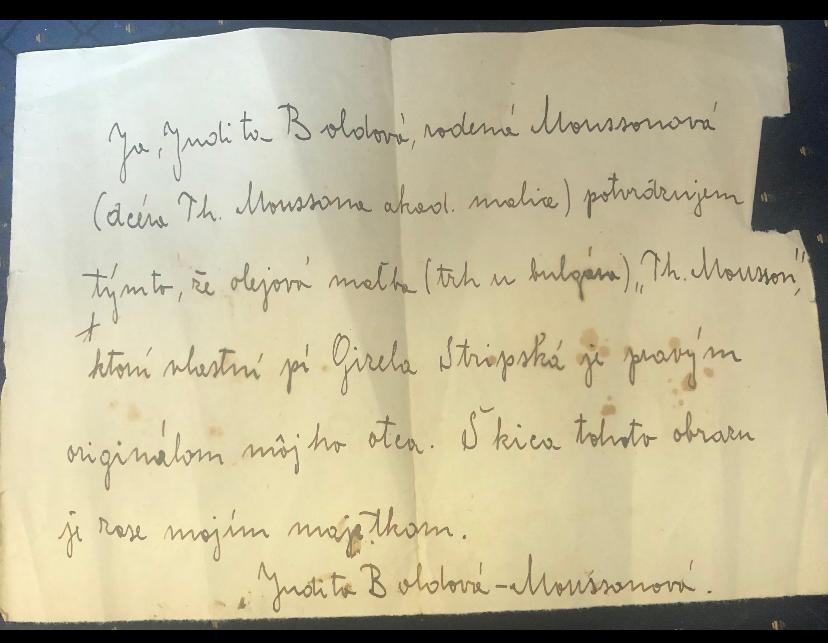 Ja, Judita Boldová, rodená Moussonová
(dcéra Th. Moussona akad. malia) potvrdzujem
týmto, že olejová maľba (trh u bulgára) „Th. Mousson",
ktorú vlastní pí Gizela Stripská je pravým
originálom môjho otca. Škica tohoto obrazu
je zase mojím majetkom.
Judita Boldová-Moussonová.